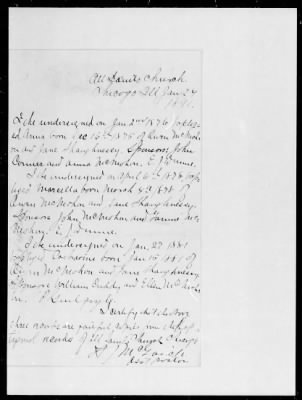 All Saints Church
Chicago Ill Jan 27
1891.
I the undersigned on Jan 2nd 1876 baptiz-
ed Anna born Dec 15th 1875 of Owen McMeho
on and Jane Shaughnessy. Sponsors John
and Anna McMehon. E J Dunne.
I the undersigned on April 6th 1878 bap
tized Marcella born March 4th 1878 of
Owen McMehon and Jane Shaughnessy.
Sponsors John McMehon and Fannie Mc
Mehon. E J Dunne.
I the undersigned on Jan 27 1881
baptized Catharine born Jan 15th 1881 of
Owen McMehon and Jane Shaughnessy
Sponsors William and Ellen McMeho
n.
I certify that the above
three are faithful from
records of All Saints Church Chicago